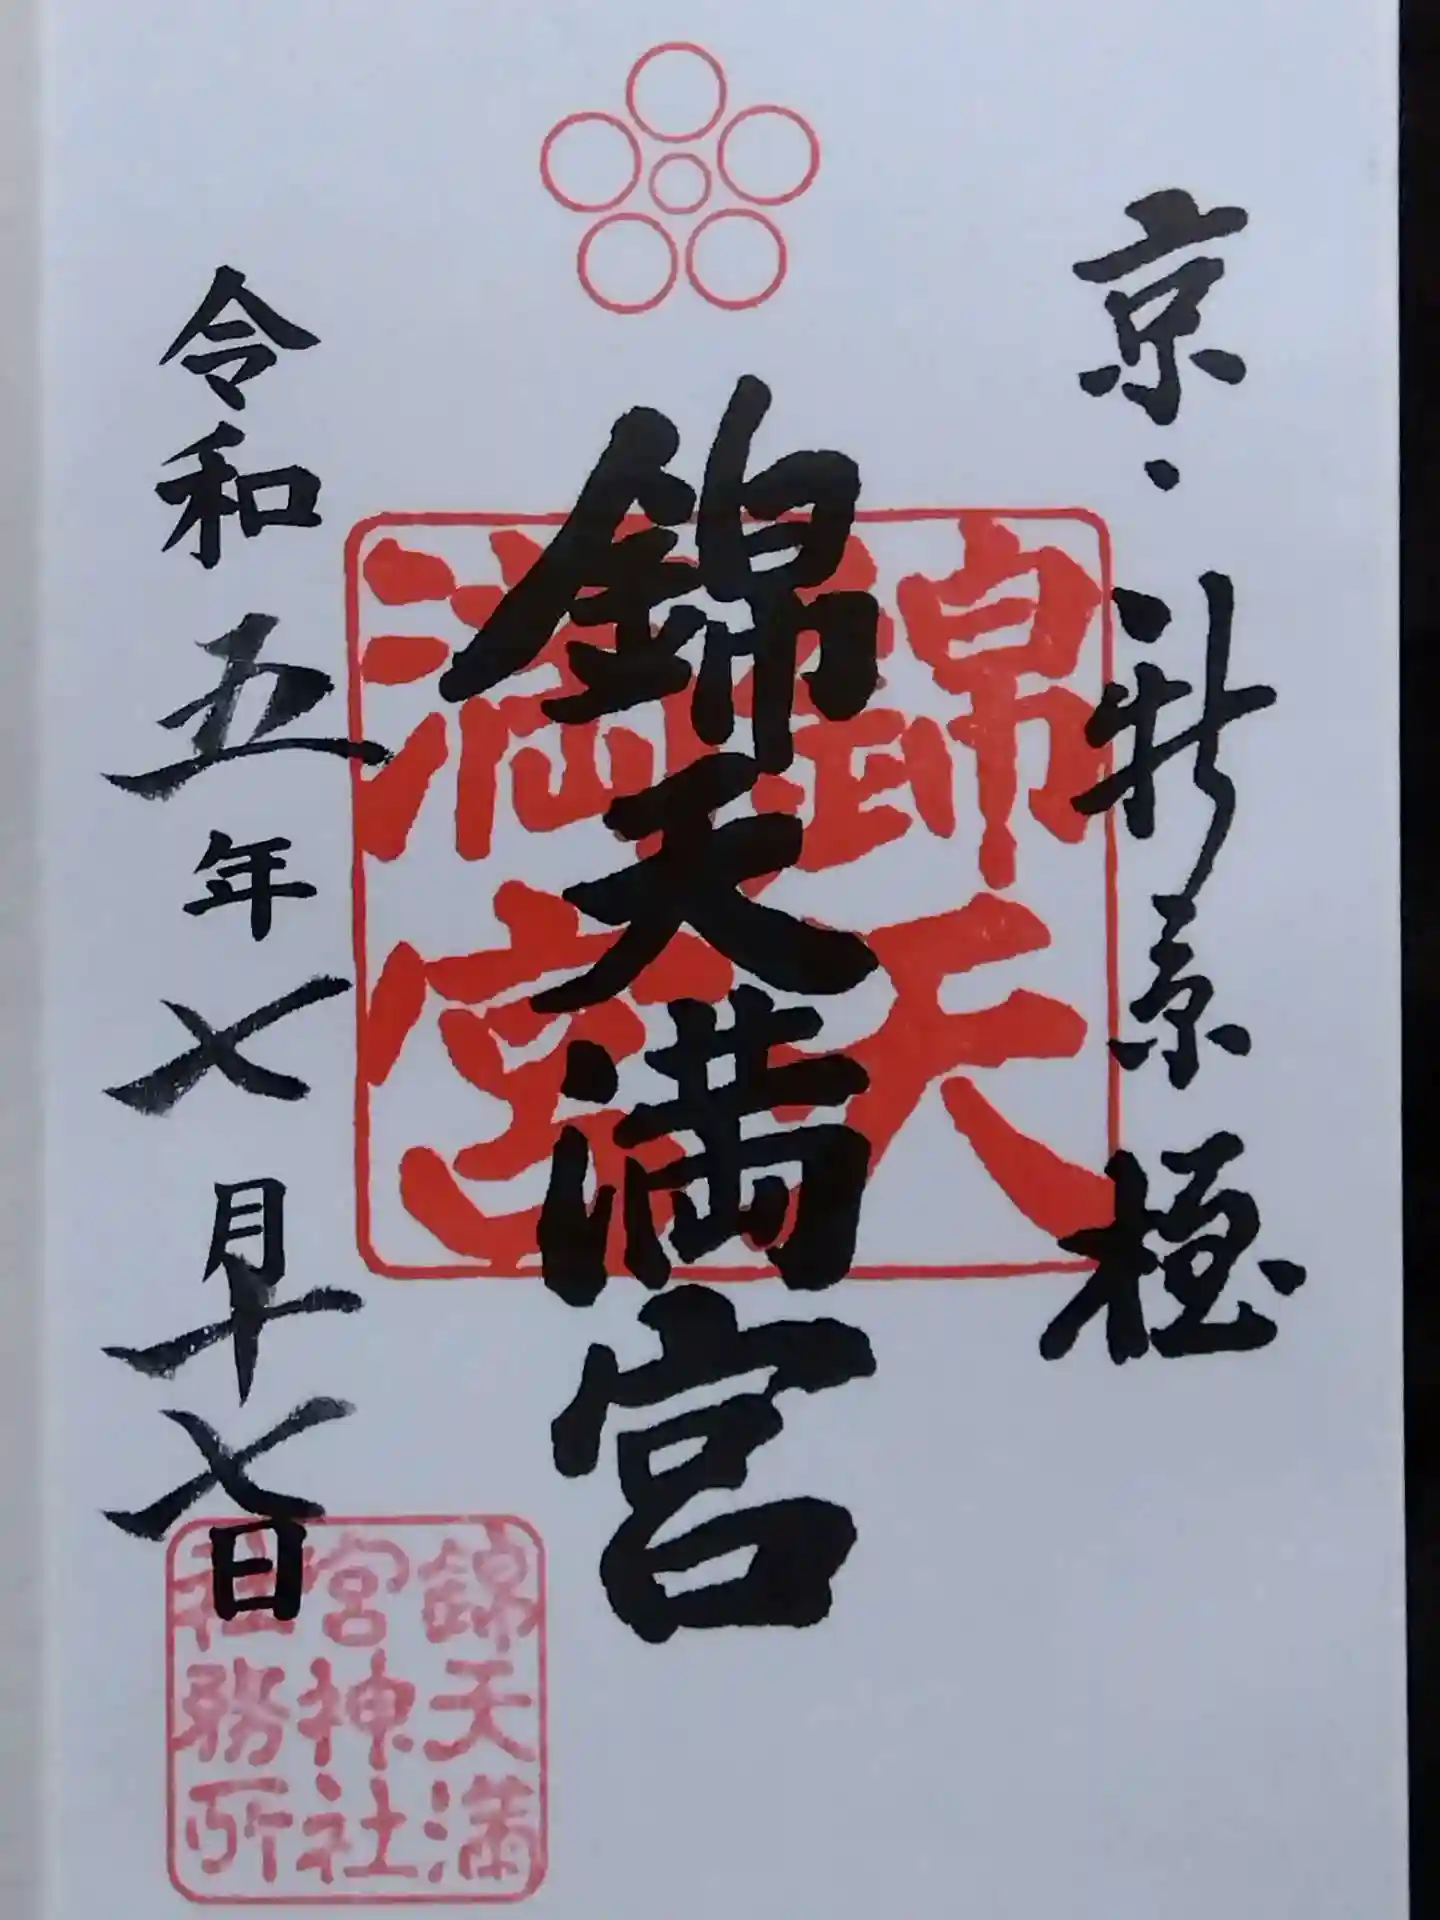 京・新京極
錦天満宮
令和五年七月十七日
錦天
満宮
錦天満
宮神社
社務所